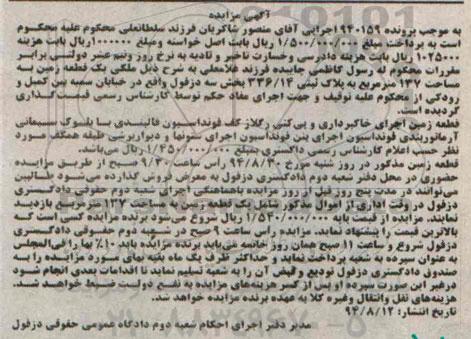 آگهی مزایده
به موجب پرونده ۹۴۰۱۵۹ اجرایی آقای منصور شاکریان فرزند سلطانعلی محکوم علیه محکوم
است به پرداخت مبلغ ۱/۵۰۰/۰۰۰/۰۰۰ ریال بابت اصل خواسته ومبلغ ۱۰۰۰۰۰۰ ریال بابت هزینه
۱۰۲۵۰۰۰ ریال بابت هزینه دادرسی وخسارت تاخیر و تادیه به نرخ روز ونیم عشر دولتی برابر
مقررات محکوم له رسول کاظمی جابیده فرزند غلامعلی به شرح ذیل ملکی یک قطعه زمین به
مساحت ۱۳۷ مترمربع به پلاک ثبتی ۳۳۶/۱۴ بخش سه دزفول واقع در خیابان سمیه بین کمیل و
رودکی از محکوم علیه توقیف و جهت اجرای مفاد حکم توسط کارشناس رسمی قیمت گذاری
گردیده است.
قطعه زمین اجرای خاکبرداری و پی کنی رگلاژ کف فونداسیون قالبندی با بلوک سیمانی
آرماتوربندی فونداسیون اجرای بتن فونداسیون اجرای ستونها و دیوارپرشی طبقه همکف مورد
نظر حسب اعلام کارشناس رسمی دادگستری بمبلغ ۱/۴۵۰/۰۰۰/۰۰۰ ریال می باشد.
قطعه زمین مذکور در روز شنبه مورخ ۹۴/۸/۳۰ رأس ساعت ۹/۳۰ صبح از طریق مزایده
حضوری در محل دفتر شعبه دوم دادگستری دزفول به معرض فروش گذارده می شود طالبین
می توانند در مدت پنج روز قبل از روز مزایده باهماهنگی اجرای شعبه دوم حقوقی دادگستری
دزفول در وقت اداری از اموال مذکور شامل یک قطعه زمین به مساحت ۱۳۷ مترمربع بازدید
نمایند. مزایده از قیمت پایه ۱/۵۴۰/۰۰۰/۰۰۰ ریال شروع می شود برنده مزایده کسی است که
بالاترین قیمت را پیشنهاد نماید. مزایده رأس ساعت ۹ صبح در شعبه دوم حقوقی دادگستری
دزفول شروع و ساعت ۱۱ صبح همان روز خاتمه می یابد برنده مزایده باید ۱۰٪ بها را فی المجلس
به عنوان سپرده به شعبه پرداخت نماید و حداکثر ظرف یک ماه بقیه بهای مورد مزایده را به
صندوق دادگستری دزفول تودیع و قبض آن را به شعبه تسلیم نماید تا اقدامات بعدی انجام شود
درغیر این صورت سپرده او پس از کسر هزینه های مزایده به نفع دولت ضبط خواهد شد.
هزینه های نقل وانتقال وغیره کلا به عهده برنده مزایده خواهد شد.
تاریخ انتشار: ۹۴/۸/۱۲
مدیر دفتر اجرای احکام شعبه دوم دادگاه عمومی حقوقی دزفول